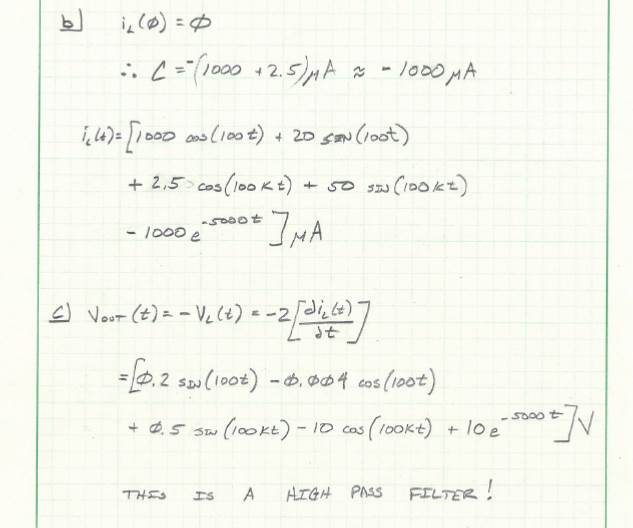 b) i_L(∅) = ∅
∴ C = -(1000 + 2.5)μA ≈ - 1000 μA
i_L(t) = [1000 cos(100t) + 20 SIN(100t)
+ 2.5 cos(100kt) + 50 SIN(100kt)
- 1000 e^{-5000t} ] μA
c) V_OUT(t) = - V_L(t) = -2 [di_L(t)/dt]
= [∅.2 SIN(100t) - ∅.∅∅4 cos(100t)
+ ∅.5 SIN(100kt) - 10 cos(100kt) + 10 e^{-5000t} ] V
THIS IS A HIGH PASS FILTER!